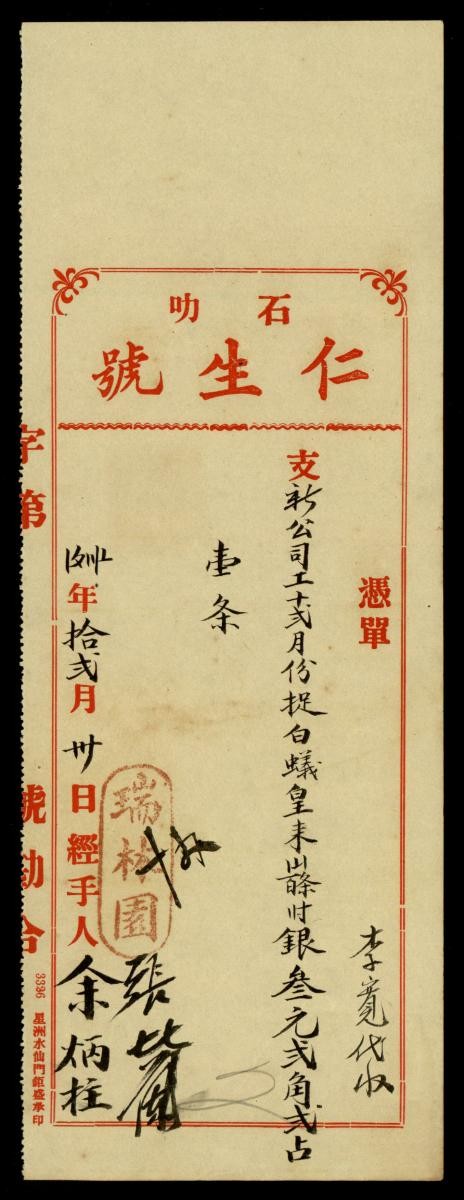 石叻
仁生號
憑單
李寬代收
支新公司工十弍月份捉白蟻皇来
銀叁元弍角弍占
壹条
瑞林園
張
年拾弍月卅日經手人余炳柱
字第 號勘合
3336 星洲水仙門鉅盛承印